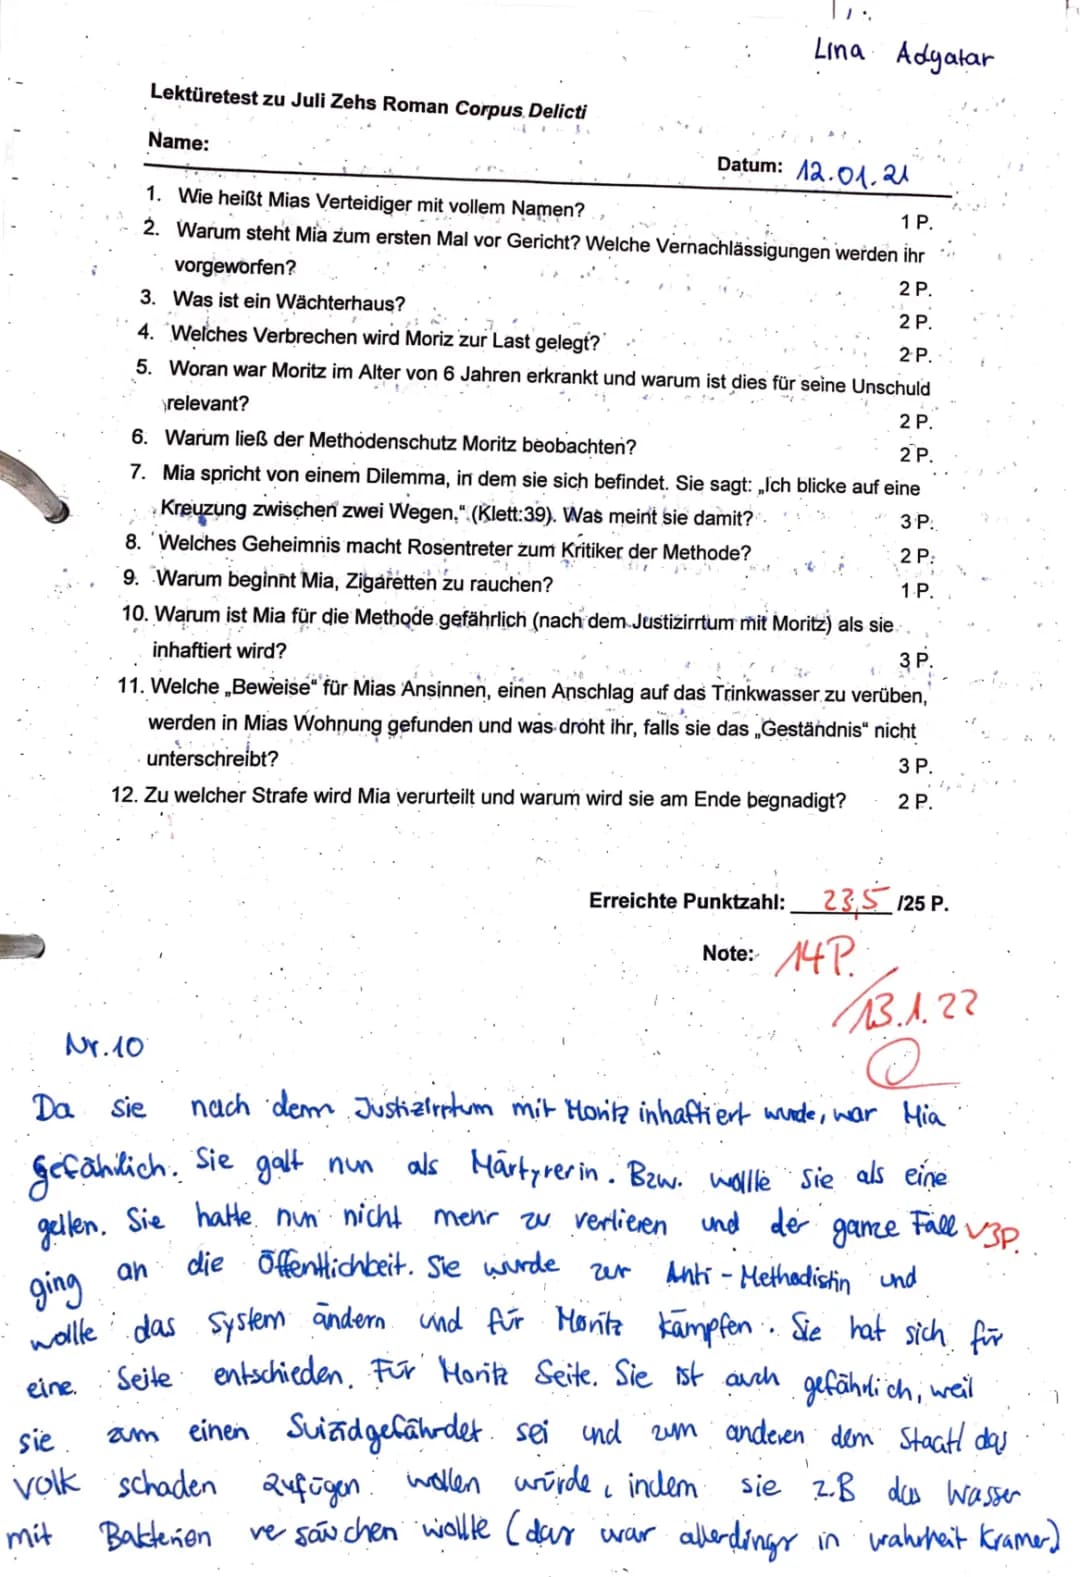 Lina Adyatar
Lektüretest zu Juli Zehs Roman Corpus Delicti
Name:
Datum: 12.01.21
1. Wie heißt Mias Verteidiger mit vollem Namen? 1 P.
2. Warum steht Mia zum ersten Mal vor Gericht? Welche Vernachlässigungen werden ihr
vorgeworfen? 2 P.
3. Was ist ein Wächterhaus? 2 P.
4. Welches Verbrechen wird Moriz zur Last gelegt? 2 P.
5. Woran war Moritz im Alter von 6 Jahren erkrankt und warum ist dies für seine Unschuld
relevant? 2 P.
6. Warum ließ der Methodenschutz Moritz beobachten? 2 P.
7. Mia spricht von einem Dilemma, in dem sie sich befindet. Sie sagt: „Ich blicke auf eine
Kreuzung zwischen zwei Wegen," (Klett:39). Was meint sie damit? 3 P.
8. Welches Geheimnis macht Rosentreter zum Kritiker der Methode? 2 P.
9. Warum beginnt Mia, Zigaretten zu rauchen? 1 P.
10. Warum ist Mia für die Methode gefährlich (nach dem Justizirrtum mit Moritz) als sie
inhaftiert wird? 3 P.
11. Welche „Beweise" für Mias Ansinnen, einen Anschlag auf das Trinkwasser zu verüben,
werden in Mias Wohnung gefunden und was droht ihr, falls sie das „Geständnis" nicht
unterschreibt? 3 P.
12. Zu welcher Strafe wird Mia verurteilt und warum wird sie am Ende begnadigt? 2 P.
Erreichte Punktzahl: 23,5 /25 P.
Note: 14P.
13.1.22
Nr.10
Da sie nach dem Justizirrtum mit Moritz inhaftiert wurde, war Mia
gefährlich. Sie galt nun als Märtyrerin. Bzw. wollte sie als eine
gelten. Sie hatte nun nicht mehr zu verlieren und der ganze Fall √3P.
ging an die Öffentlichkeit. Sie wurde zur Anti-Methodistin und
wollte das System ändern und für Moritz kämpfen. Sie hat sich für
eine Seite entschieden. Für Moritz Seite. Sie ist auch gefährlich, weil
sie zum einen Suizidgefährdet sei und zum anderen dem Staatl das
Volk schaden zufügen wollen würde, indem sie z.B das Wasser
mit Bakterien verseuchen wollte (das war allerdings in wahrheit Kramer)